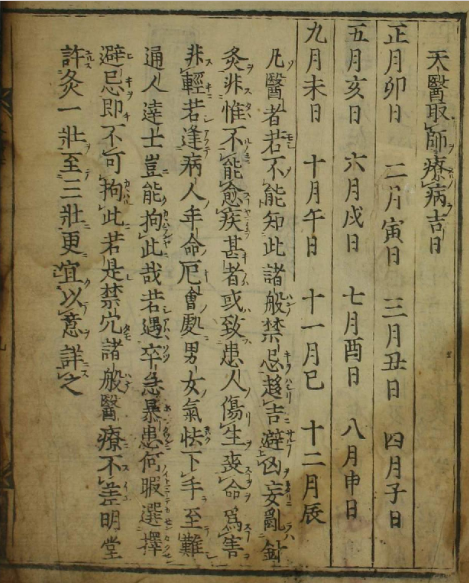 天醫取師療病吉日
正月卯日 二月寅日 三月丑日 四月子日
五月亥日 六月戌日 七月酉日 八月申日
九月未日 十月午日 十一月巳 十二月辰
凡醫者若不能知此諸般禁忌趍吉避凶妄亂針
灸非惟不能愈疾甚者或致患人傷生喪命爲害
非輕若逢病人年命厄會處男女氣怯下手至難
通人達士豈能拘此哉若遇卒急暴患何暇選擇
避忌即不可拘此若是禁穴諸般醫療不差明堂
許灸一壯至三壯更宜以意詳之